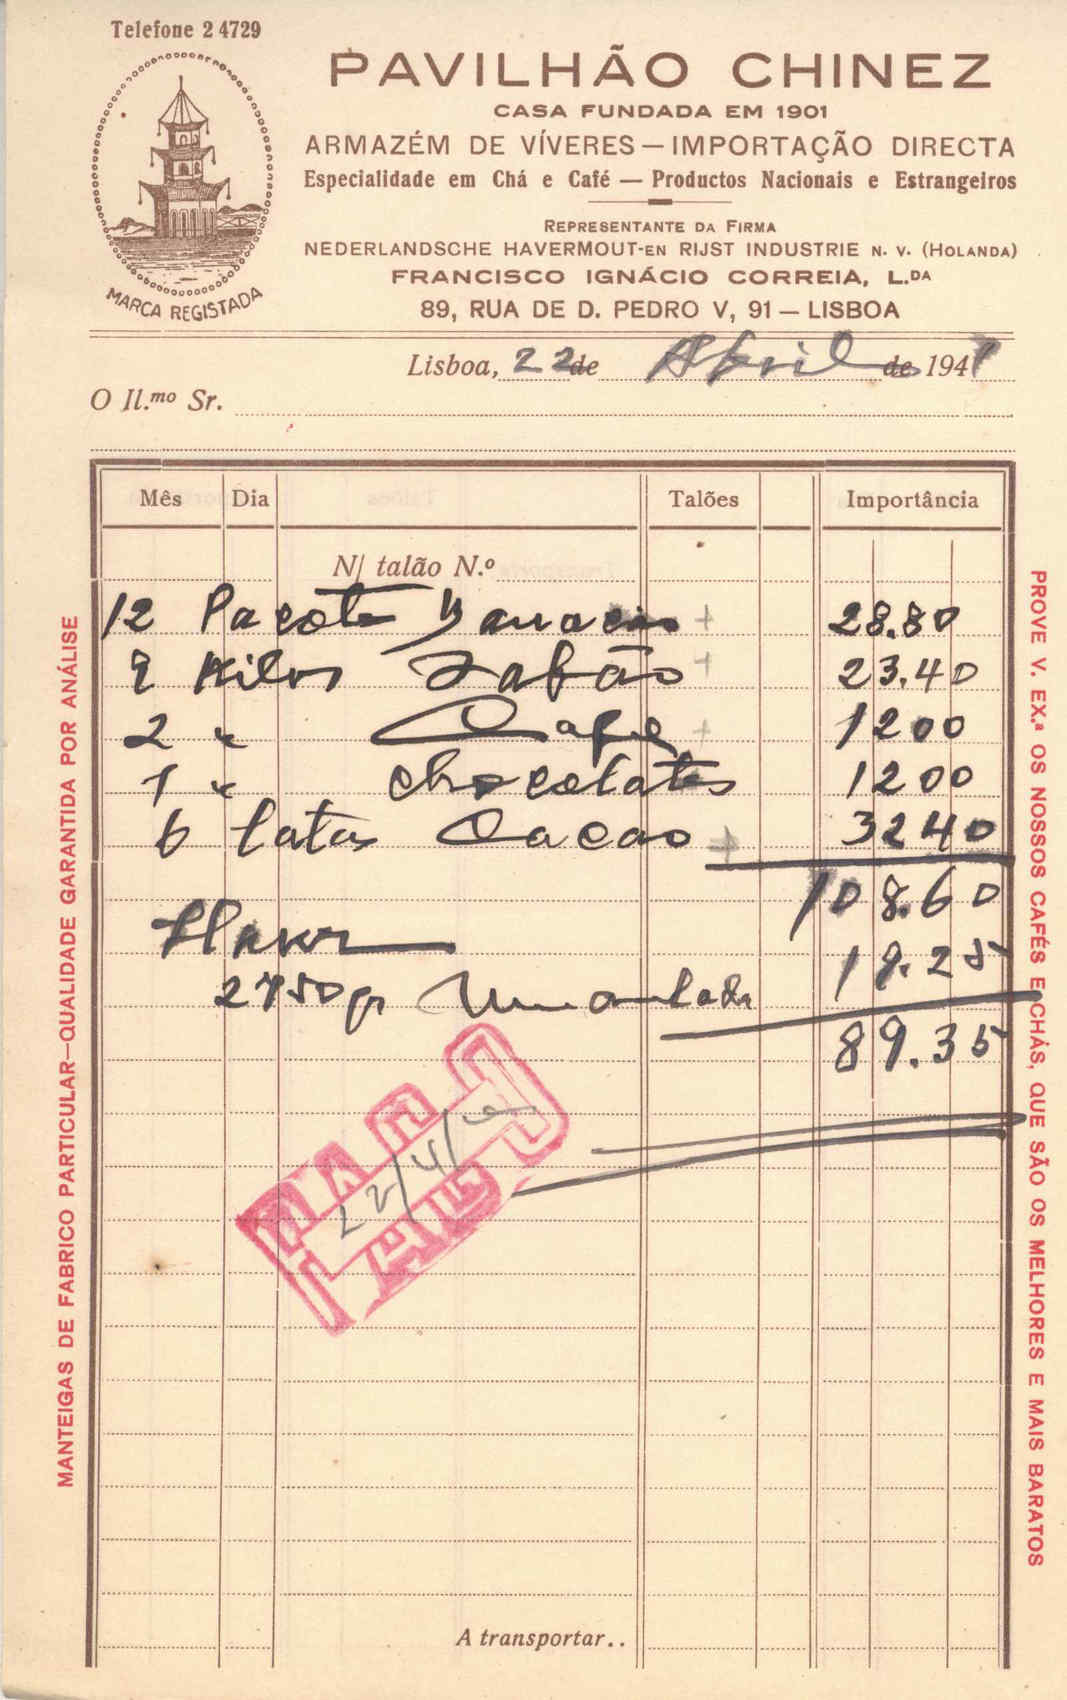 Telefone 2 4729
PAVILHÃO CHINEZ
CASA FUNDADA EM 1901
ARMAZÉM DE VÍVERES — IMPORTAÇÃO DIRECTA
Especialidade em Chá e Café — Productos Nacionais e Estrangeiros
REPRESENTANTE DA FIRMA
NEDERLANDSCHE HAVERMOUT-EN RIJST INDUSTRIE N. V. (HOLANDA)
FRANCISCO IGNÁCIO CORREIA, L.DA
89, RUA DE D. PEDRO V, 91 — LISBOA
MARCA REGISTADA
Lisboa, 22 de Abril de 1941
O Il.mo Sr.
Mês Dia Talões Importância
N/ talão N.º
12 Pacote 28.80
9 Kilos Sabão 23.40
2 " Café 1200
1 " chocolates 1200
6 latas Cacao 3240
108.60
2750 gr 19.25
89.35
PAGO
22/4/
A transportar..
MANTEIGAS DE FABRICO PARTICULAR—QUALIDADE GARANTIDA POR ANÁLISE
PROVE V. EX.ª OS NOSSOS CAFÉS E CHÁS, QUE SÃO OS MELHORES E MAIS BARATOS